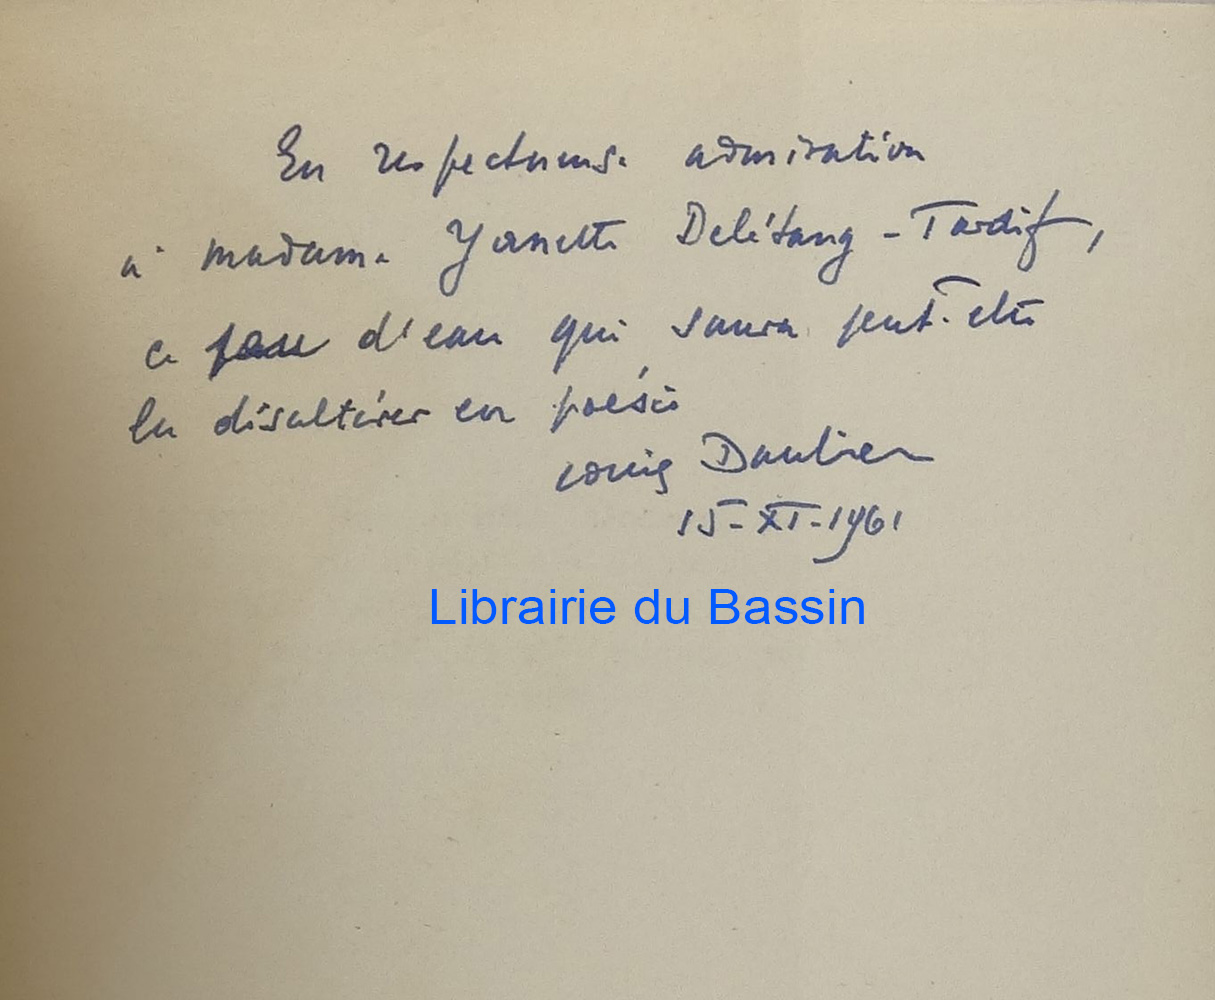 En respectueuse admiration
à madame Yanette Delétang-Tardif,
ce d'eau qui saura peut-être
la désaltérer en poésie
Louis Daubier
15-XI-1961
Librairie du Bassin